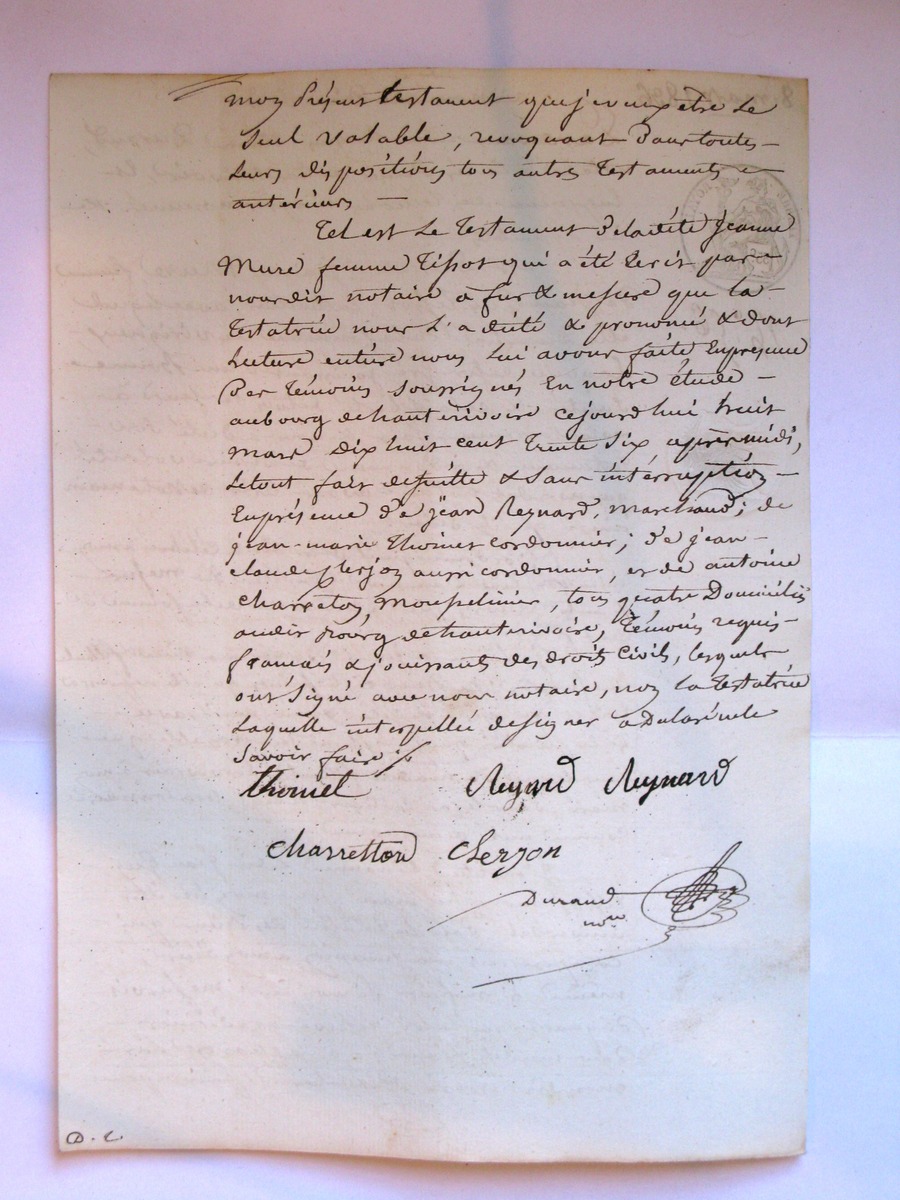 mon présent testament que je veux être le
seul valable, revoquant dans toutes
leurs dispositions tous autres testaments
antérieurs
Tel est le testament de la dite Jeanne
Mure femme Tissot qui a été écrit par
nous dit notaire à fur & mesure que la
testatrice nous l'a dicté & prononcé & dont
lecture entière nous lui avons faite en présence
des témoins soussignés en notre étude
au bourg de hauterivoire ce jourd'hui huit
mars dix huit cent trente six après midi,
le tout fait de suitte & sans interruption
En présence de jean Reynard, marchand; de
jean-marie Thoinet cordonnier; de jean-
claude Clerjon aussi cordonnier, et de antoine
charreton, tous quatre Domiciliés
audit bourg de hauterivoire, témoins requis
français & jouissants des droits civils, lesquels
ont signé avec nous notaire, non la testatrice
laquelle interpellée de signer a déclaré ne le
savoir faire
thoinet Reynard
Charretton Clerjon
Durand
nore
D. C.